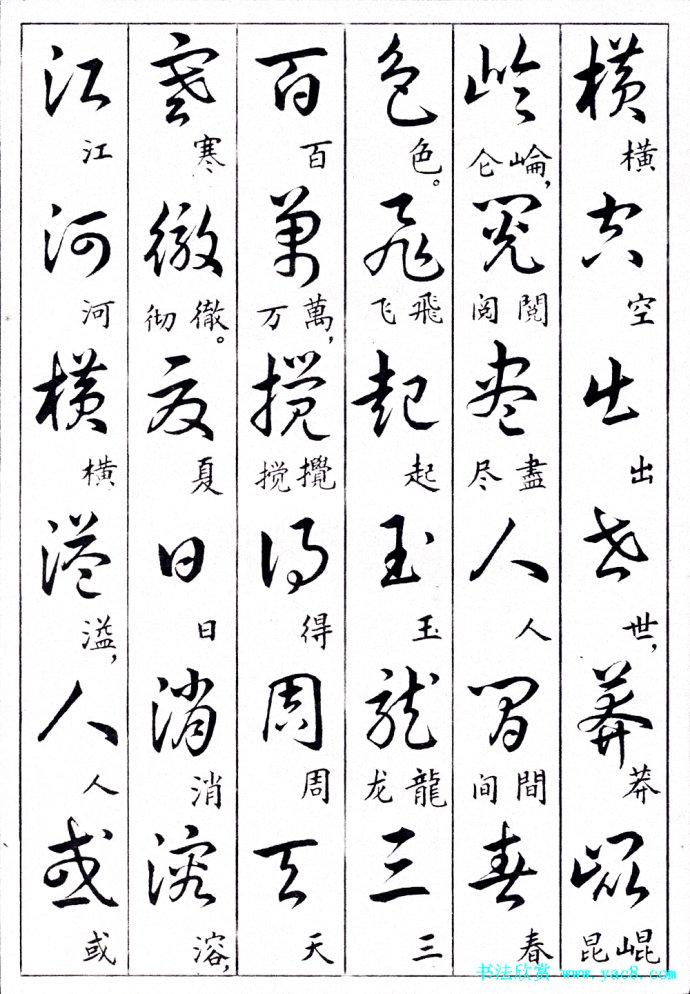 橫空出世莽崐
橫空出世，莽崐昆
崘閱盡人間春
崘仑，閱阅盡尽人間间春
色飛起玉龍三
色。飛飞起玉龍龙三
百萬攪得周天
百萬万，攪搅得周天
寒徹夏日消溶
寒徹彻。夏日消溶，
江河橫溢人或
江河橫溢，人或
书法欣赏 www.yac8.com